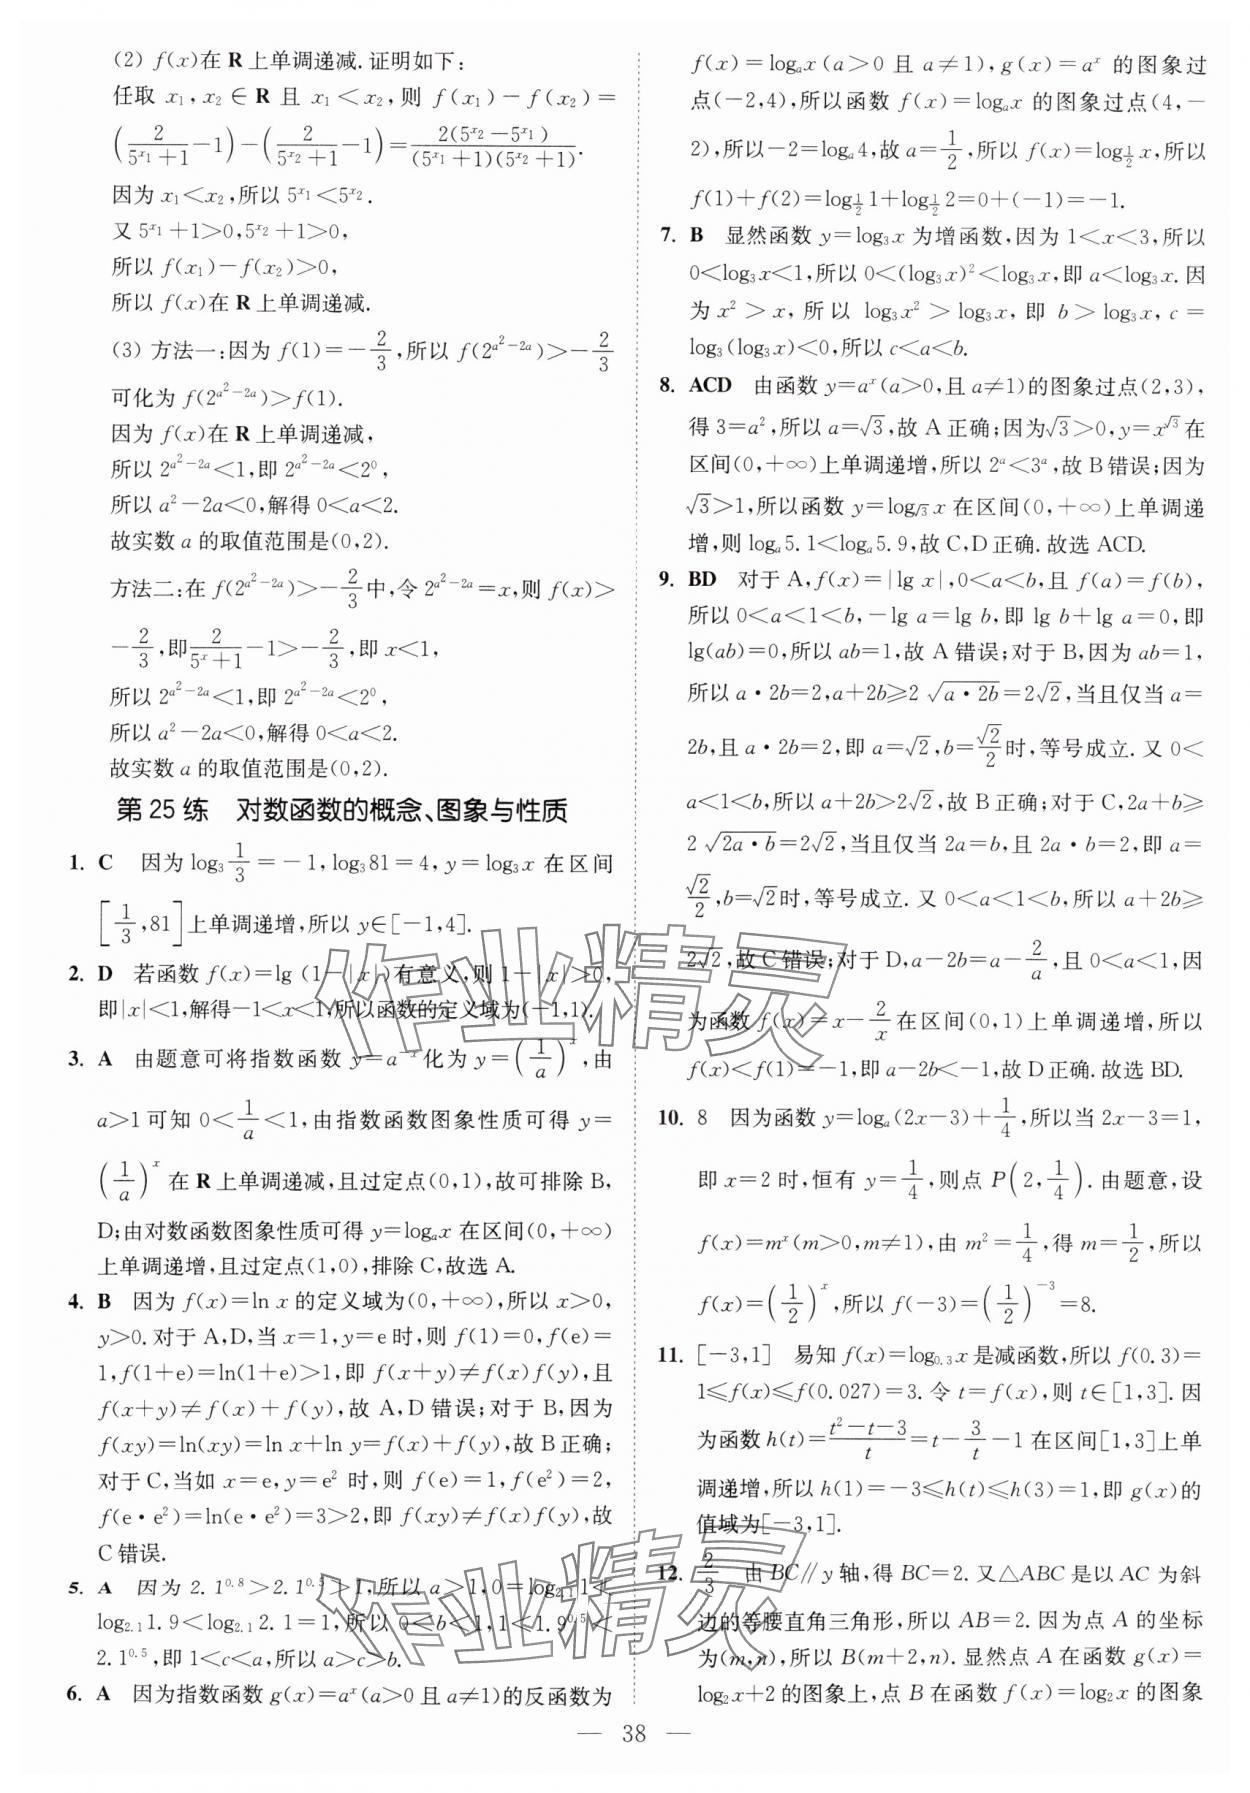 (2) f(x)在 R 上单调递减. 证明如下:
任取 x₁, x₂ ∈ R 且 x₁<x₂, 则 f(x₁)－f(x₂)＝
(2/(5^{x₁}+1)－1)－(2/(5^{x₂}+1)－1)＝2(5^{x₂}－5^{x₁})/((5^{x₁}+1)(5^{x₂}+1)).
因为 x₁<x₂,所以 5^{x₁}<5^{x₂}.
又 5^{x₁}+1>0,5^{x₂}+1>0,
所以 f(x₁)－f(x₂)>0,
所以 f(x)在 R 上单调递减.
(3) 方法一:因为 f(1)＝－2/3,所以 f(2^{a²－2a})>－2/3
可化为 f(2^{a²－2a})>f(1).
因为 f(x)在 R 上单调递减,
所以 2^{a²－2a}<1,即 2^{a²－2a}<2⁰,
所以 a²－2a<0,解得 0<a<2.
故实数 a 的取值范围是(0,2).
方法二:在 f(2^{a²－2a})>－2/3中,令 2^{a²－2a}＝x,则 f(x)>
－2/3,即2/(5^x+1)－1>－2/3,即 x<1,
所以 2^{a²－2a}<1,即 2^{a²－2a}<2⁰,
所以 a²－2a<0,解得 0<a<2.
故实数 a 的取值范围是(0,2).
第 25 练 对数函数的概念、图象与性质
1. C 因为 log₃1/3＝－1,log₃81＝4,y＝log₃x 在区间
[1/3,81]上单调递增,所以 y∈[－1,4].
2. D 若函数 f(x)＝lg (1－|x|)有意义,则 1－|x|>0,
即|x|<1,解得－1<x<1,所以函数的定义域为(－1,1).
3. A 由题意可将指数函数 y＝a^{－x}化为 y＝(1/a)^x,由
a>1 可知 0<1/a<1,由指数函数图象性质可得 y＝
(1/a)^x 在 R 上单调递减,且过定点(0,1),故可排除 B,
D;由对数函数图象性质可得 y＝logₐx 在区间(0,+∞)
上单调递增,且过定点(1,0),排除 C,故选 A.
4. B 因为 f(x)＝ln x 的定义域为(0,+∞),所以 x>0,
y>0. 对于 A,D,当 x＝1,y＝e 时,则 f(1)＝0,f(e)＝
1,f(1+e)＝ln(1+e)>1,即 f(x+y)≠f(x)f(y),且
f(x+y)≠f(x)+f(y),故 A,D 错误;对于 B,因为
f(xy)＝ln(xy)＝ln x+ln y＝f(x)+f(y),故 B 正确;
对于 C,当如 x＝e,y＝e² 时,则 f(e)＝1,f(e²)＝2,
f(e·e²)＝ln(e·e²)＝3>2,即 f(xy)≠f(x)f(y),故
C 错误.
5. A 因为 2.1^{0.8}>2.1^{0.5}>1,所以 a>1,0＝log_{2.1}1<
log_{2.1}1.9<log_{2.1}2.1＝1,所以 0<b<1,1<1.9^{0.5}<
2.1^{0.5},即 1<c<a,所以 a>c>b.
6. A 因为指数函数 g(x)＝a^x(a>0 且 a≠1)的反函数为
f(x)＝logₐx(a>0 且 a≠1),g(x)＝a^x 的图象过
点(－2,4),所以函数 f(x)＝logₐx 的图象过点(4,－
2),所以－2＝logₐ4,故 a＝1/2,所以 f(x)＝log_{1/2}x,所以
f(1)+f(2)＝log_{1/2}1+log_{1/2}2＝0+(－1)＝－1.
7. B 显然函数 y＝log₃x 为增函数,因为 1<x<3,所以
0<log₃x<1,所以 0<(log₃x)²<log₃x,即 a<log₃x. 因
为 x²>x,所以 log₃x²>log₃x,即 b>log₃x,c＝
log₃(log₃x)<0,所以 c<a<b.
8. ACD 由函数 y＝a^x(a>0,且 a≠1)的图象过点(2,3),
得 3＝a²,所以 a＝√3,故 A 正确;因为√3>0,y＝x^{√3}在
区间(0,+∞)上单调递增,所以 2^a<3^a,故 B 错误;因为
√3>1,所以函数 y＝log_{√3}x 在区间(0,+∞)上单调递
增,则 logₐ5.1<logₐ5.9,故 C,D 正确.故选 ACD.
9. BD 对于 A,f(x)＝|lg x|,0<a<b,且 f(a)＝f(b),
所以 0<a<1<b,－lg a＝lg b,即 lg b+lg a＝0,即
lg(ab)＝0,所以 ab＝1,故 A 错误;对于 B,因为 ab＝1,
所以 a·2b＝2,a+2b≥2√(a·2b)＝2√2,当且仅当 a＝
2b,且 a·2b＝2,即 a＝√2,b＝√2/2时,等号成立. 又 0<
a<1<b,所以 a+2b>2√2,故 B 正确;对于 C,2a+b≥
2√(2a·b)＝2√2,当且仅当 2a＝b,且 2a·b＝2,即 a＝
√2/2,b＝√2时,等号成立. 又 0<a<1<b,所以 a+2b≥
2√2,故 C 错误;对于 D,a－2b＝a－2/a,且 0<a<1,因
为函数 f(x)＝x－2/x在区间(0,1)上单调递增,所以
f(x)<f(1)＝－1,即 a－2b<－1,故 D 正确.故选 BD.
10. 8 因为函数 y＝logₐ(2x－3)+1/4,所以当 2x－3＝1,
即 x＝2 时,恒有 y＝1/4,则点 P(2,1/4). 由题意,设
f(x)＝m^x(m>0,m≠1),由 m²＝1/4,得 m＝1/2,所以
f(x)＝(1/2)^x,所以 f(－3)＝(1/2)^{－3}＝8.
11. [－3,1] 易知 f(x)＝log_{0.3}x 是减函数,所以 f(0.3)＝
1≤f(x)≤f(0.027)＝3. 令 t＝f(x),则 t∈[1,3]. 因
为函数 h(t)＝(t²－t－3)/t＝t－3/t－1 在区间[1,3]上单
调递增,所以 h(1)＝－3≤h(t)≤h(3)＝1,即 g(x)的
值域为[－3,1].
12. 2/3 由 BC∥y 轴,得 BC＝2. 又△ABC 是以 AC 为斜
边的等腰直角三角形,所以 AB＝2. 因为点 A 的坐标
为(m,n),所以 B(m+2,n). 显然点 A 在函数 g(x)＝
log₂x+2 的图象上,点 B 在函数 f(x)＝log₂x 的图象
— 38 —
作业精灵
作业精灵